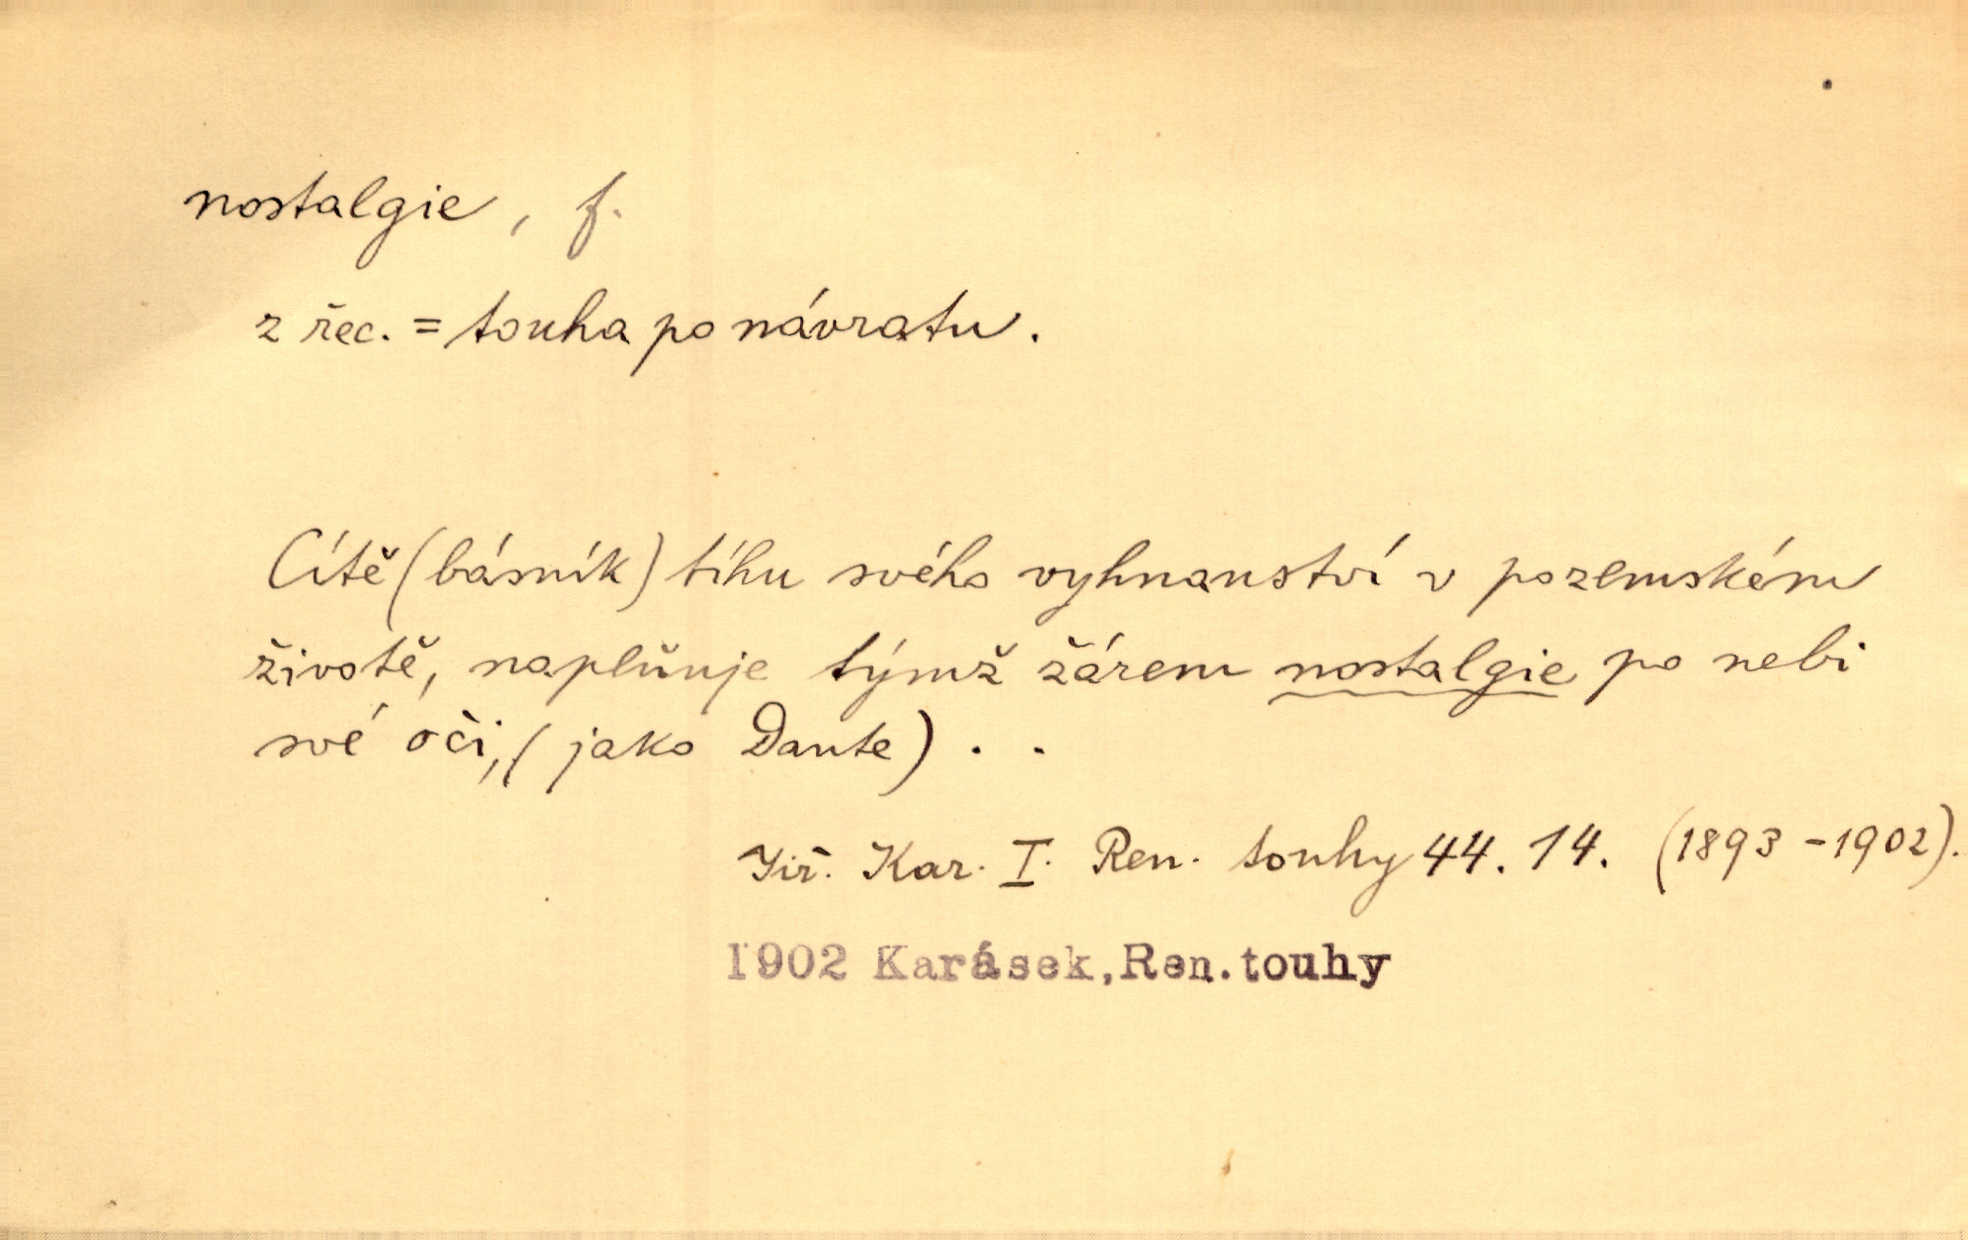 nostalgie, f.
z řec. = touha po návratu.
Cítě (básník) tíhu svého vyhnanství v pozemském
životě, naplňuje týmž žárem nostalgie po nebi
své oči, (jako Dante) . .
Jiř. Kar. I. Ren. touhy 44. 14. (1893 - 1902).
1902 Karásek, Ren. touhy